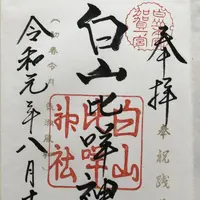 奉拝
加賀一宮
奉祝
白山比咩神
白山
比咩
神社
令和元年八月十